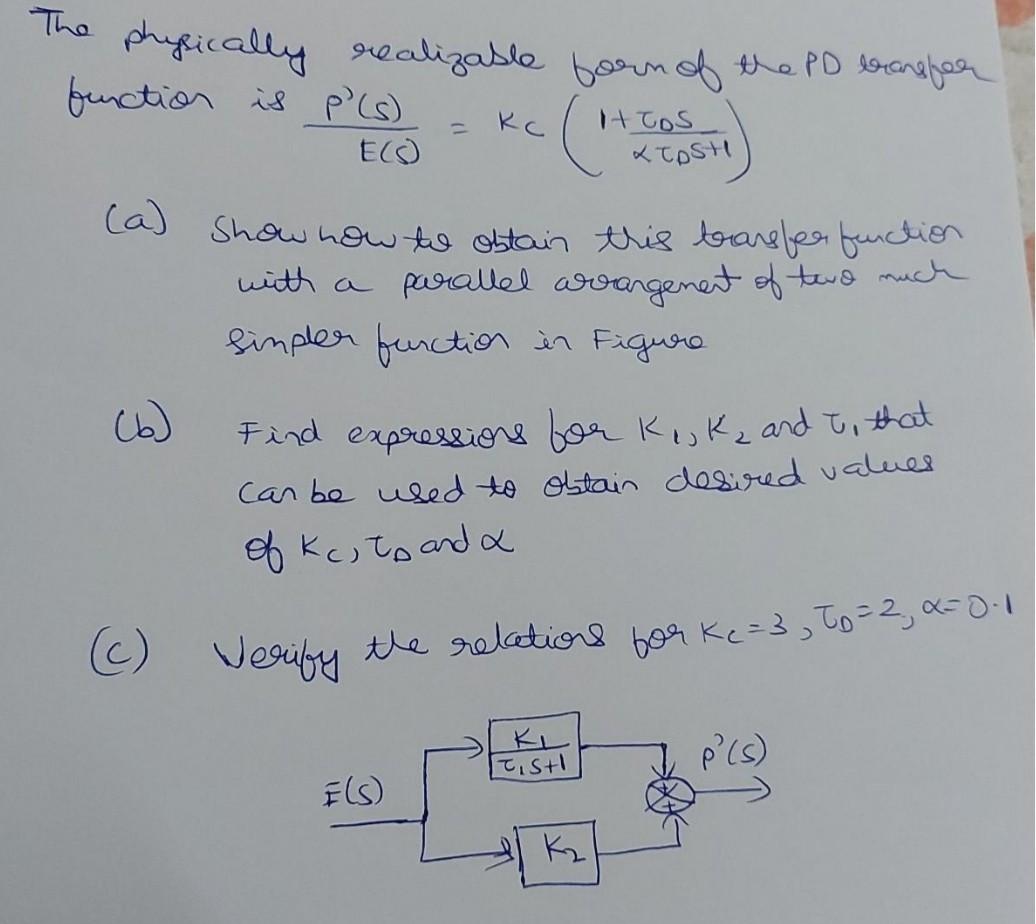 The physically realizable form of the PD transfer
function is P'(s)/E(s) = Kc ( (1+τDS)/(ατDS+1) )
(a) Show how to obtain this transfer function
with a parallel arrangement of two much
simpler function in Figure
(b) Find expressions for K1, K2 and τ1 that
can be used to obtain desired values
of Kc, τD and α
(c) Verify the relations for Kc=3, τD=2, α=0.1
K1/(τ1S+1)
P'(s)
E(s)
K2